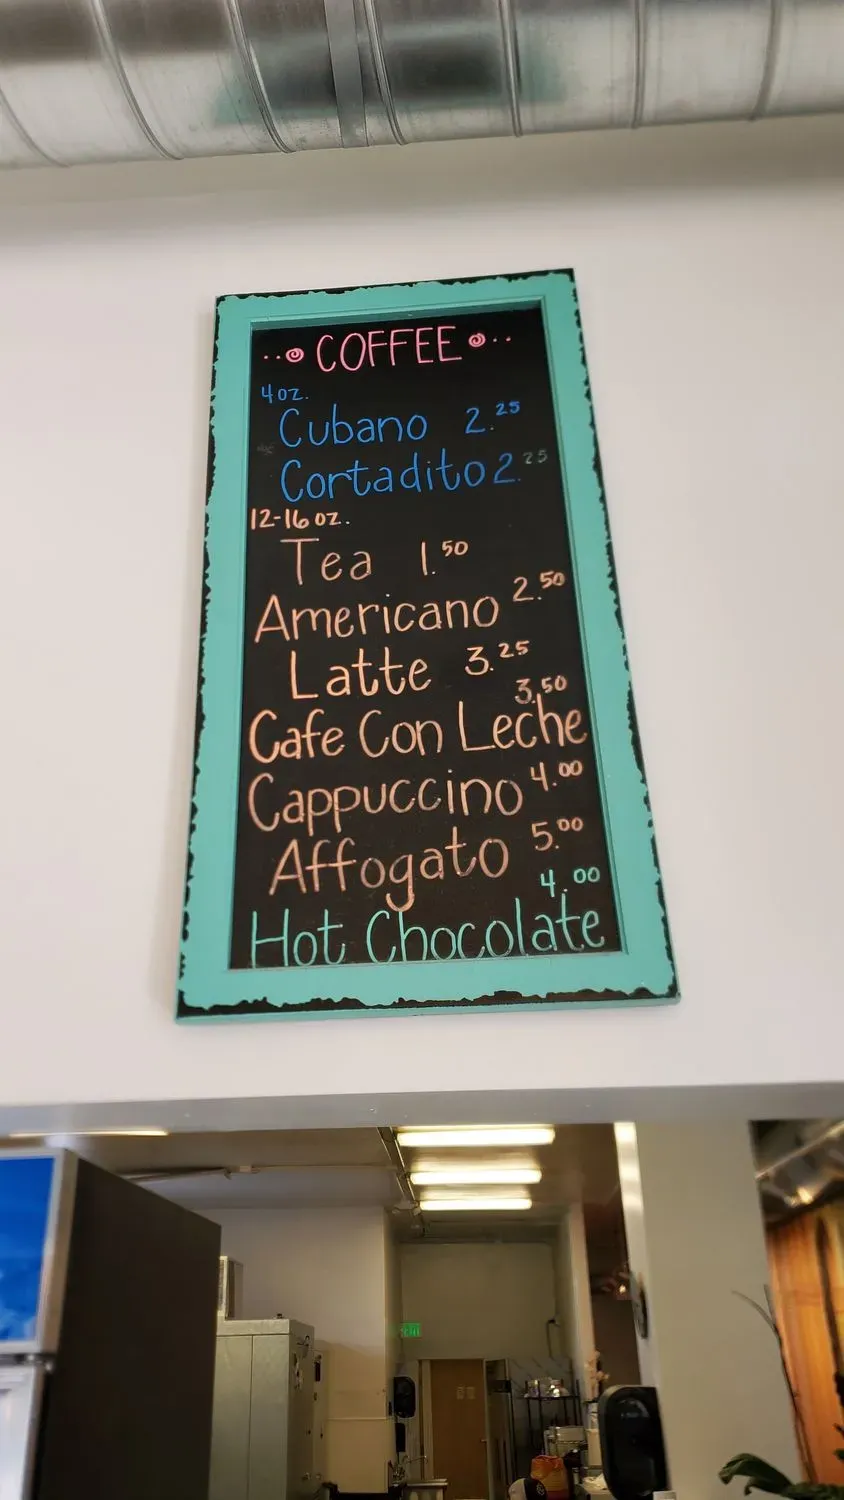 COFFEE
4 oz.
Cubano 2.25
Cortadito 2.25
12-16 oz.
Tea 1.50
Americano 2.50
Latte 3.25
3.50
Cafe Con Leche
Cappuccino 4.00
Affogato 5.00
4.00
Hot Chocolate
EXIT